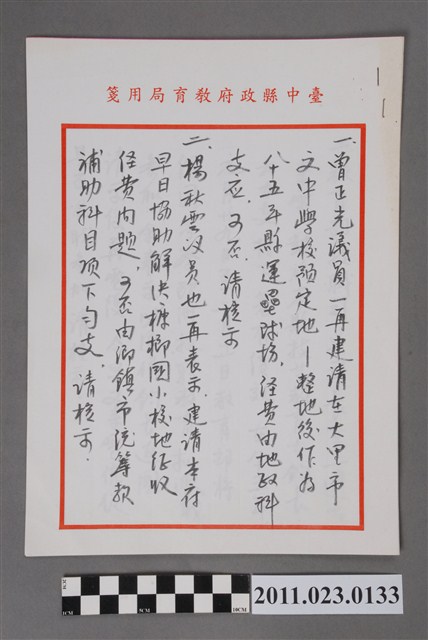 臺中縣政府教育局用箋
一、曾正先議員一再建請在大里市
文中學校預定地—整地後作為
八十五年縣運壘球場，經費由地政科
支应，可否，请核示
二、楊秋雲议员也一再表示，建请本府
早日協助解决槺榔國小校地征收
经费问题，可否由鄉鎮市统筹款
補助科目项下勻支，请核示．
1CM
5CM
10CM
2011.023.0133